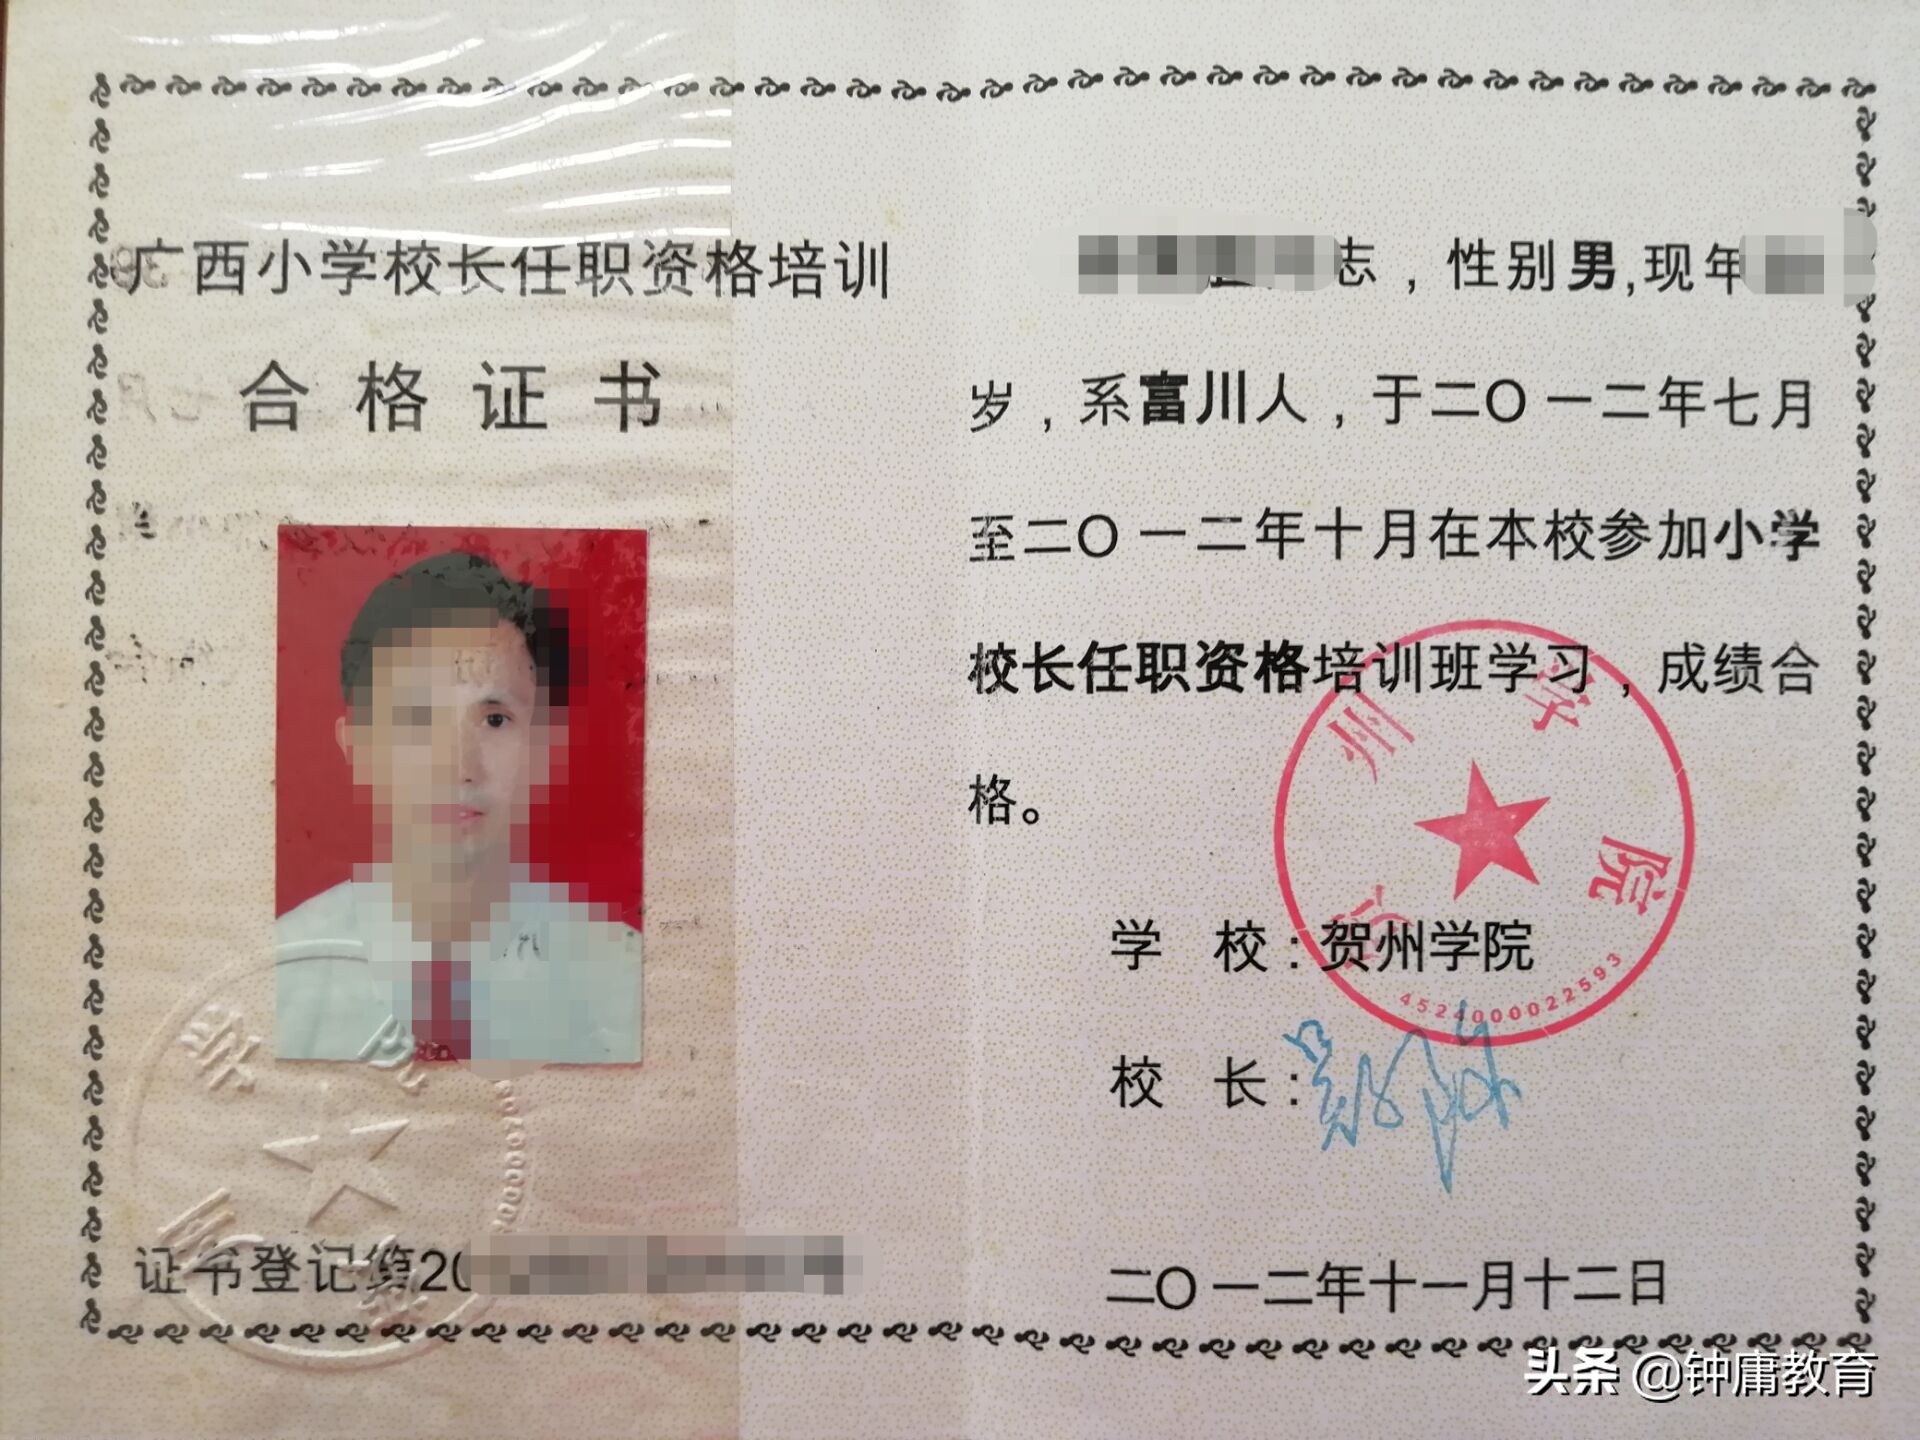 广西小学校长任职资格培训
合格证书
证书登记第20
志，性别男,现年
岁，系富川人，于二〇一二年七月
至二〇一二年十月在本校参加小学
校长任职资格培训班学习，成绩合
格。
学 校:贺州学院
校 长:
二〇一二年十一月十二日
州学院
4524000022593
头条 @钟庸教育